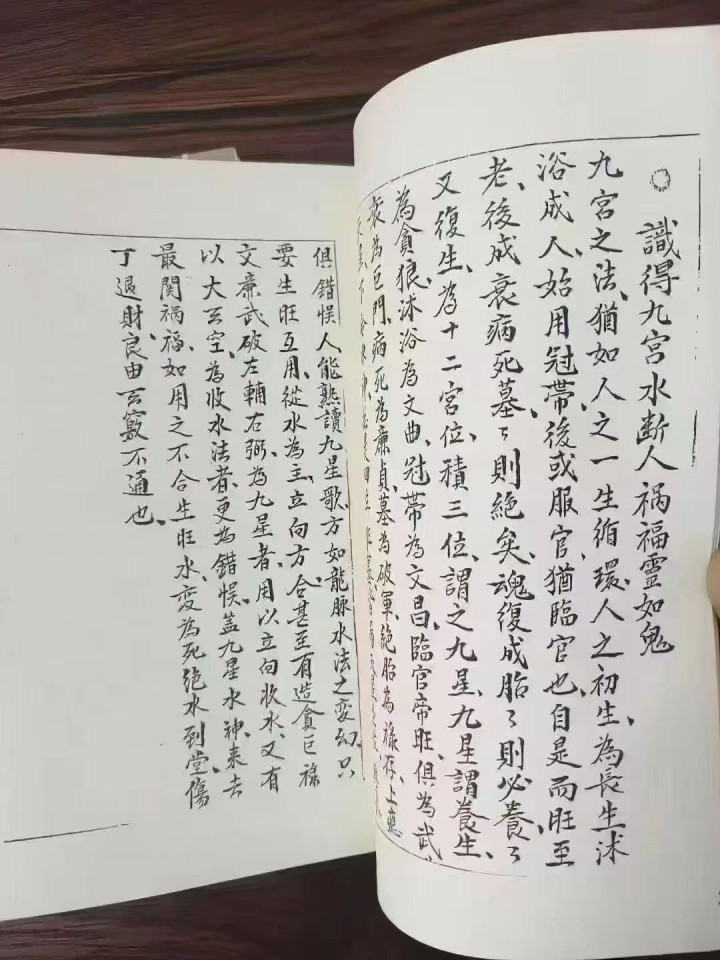 ○ 識得九宮水断人禍福靈如鬼
九宮之法、猶如人之一生循環、人之初生、為長生沭
浴成人、始用冠帶、後或服官、猶臨官也、自是而旺至
老、後成衰病死墓、々則絕矣、魂復成胎、々則必養、々
又復生、為十二宮位、積三位、謂之九星、九星謂養生、
為貪狼、沭浴為文曲、冠帶為文昌、臨官帝旺、俱為武、
衰為巨門、病死為廉貞、墓為破軍、絕胎為祿存、上應
俱錯悮人能熟讀九星歌、方如龍脉水法之変幻、只
要生旺互用、從水為主、立向方合、甚至有造貪巨祿
文廉武破左輔右弼、為九星者、用以立向收水、又有
以大玄空、為收水法者、更為錯悮、蓋九星水神、来去
最関禍福、如用之不合生旺水、变為死絕水到堂、傷
丁退財、良由玄竅不通也、